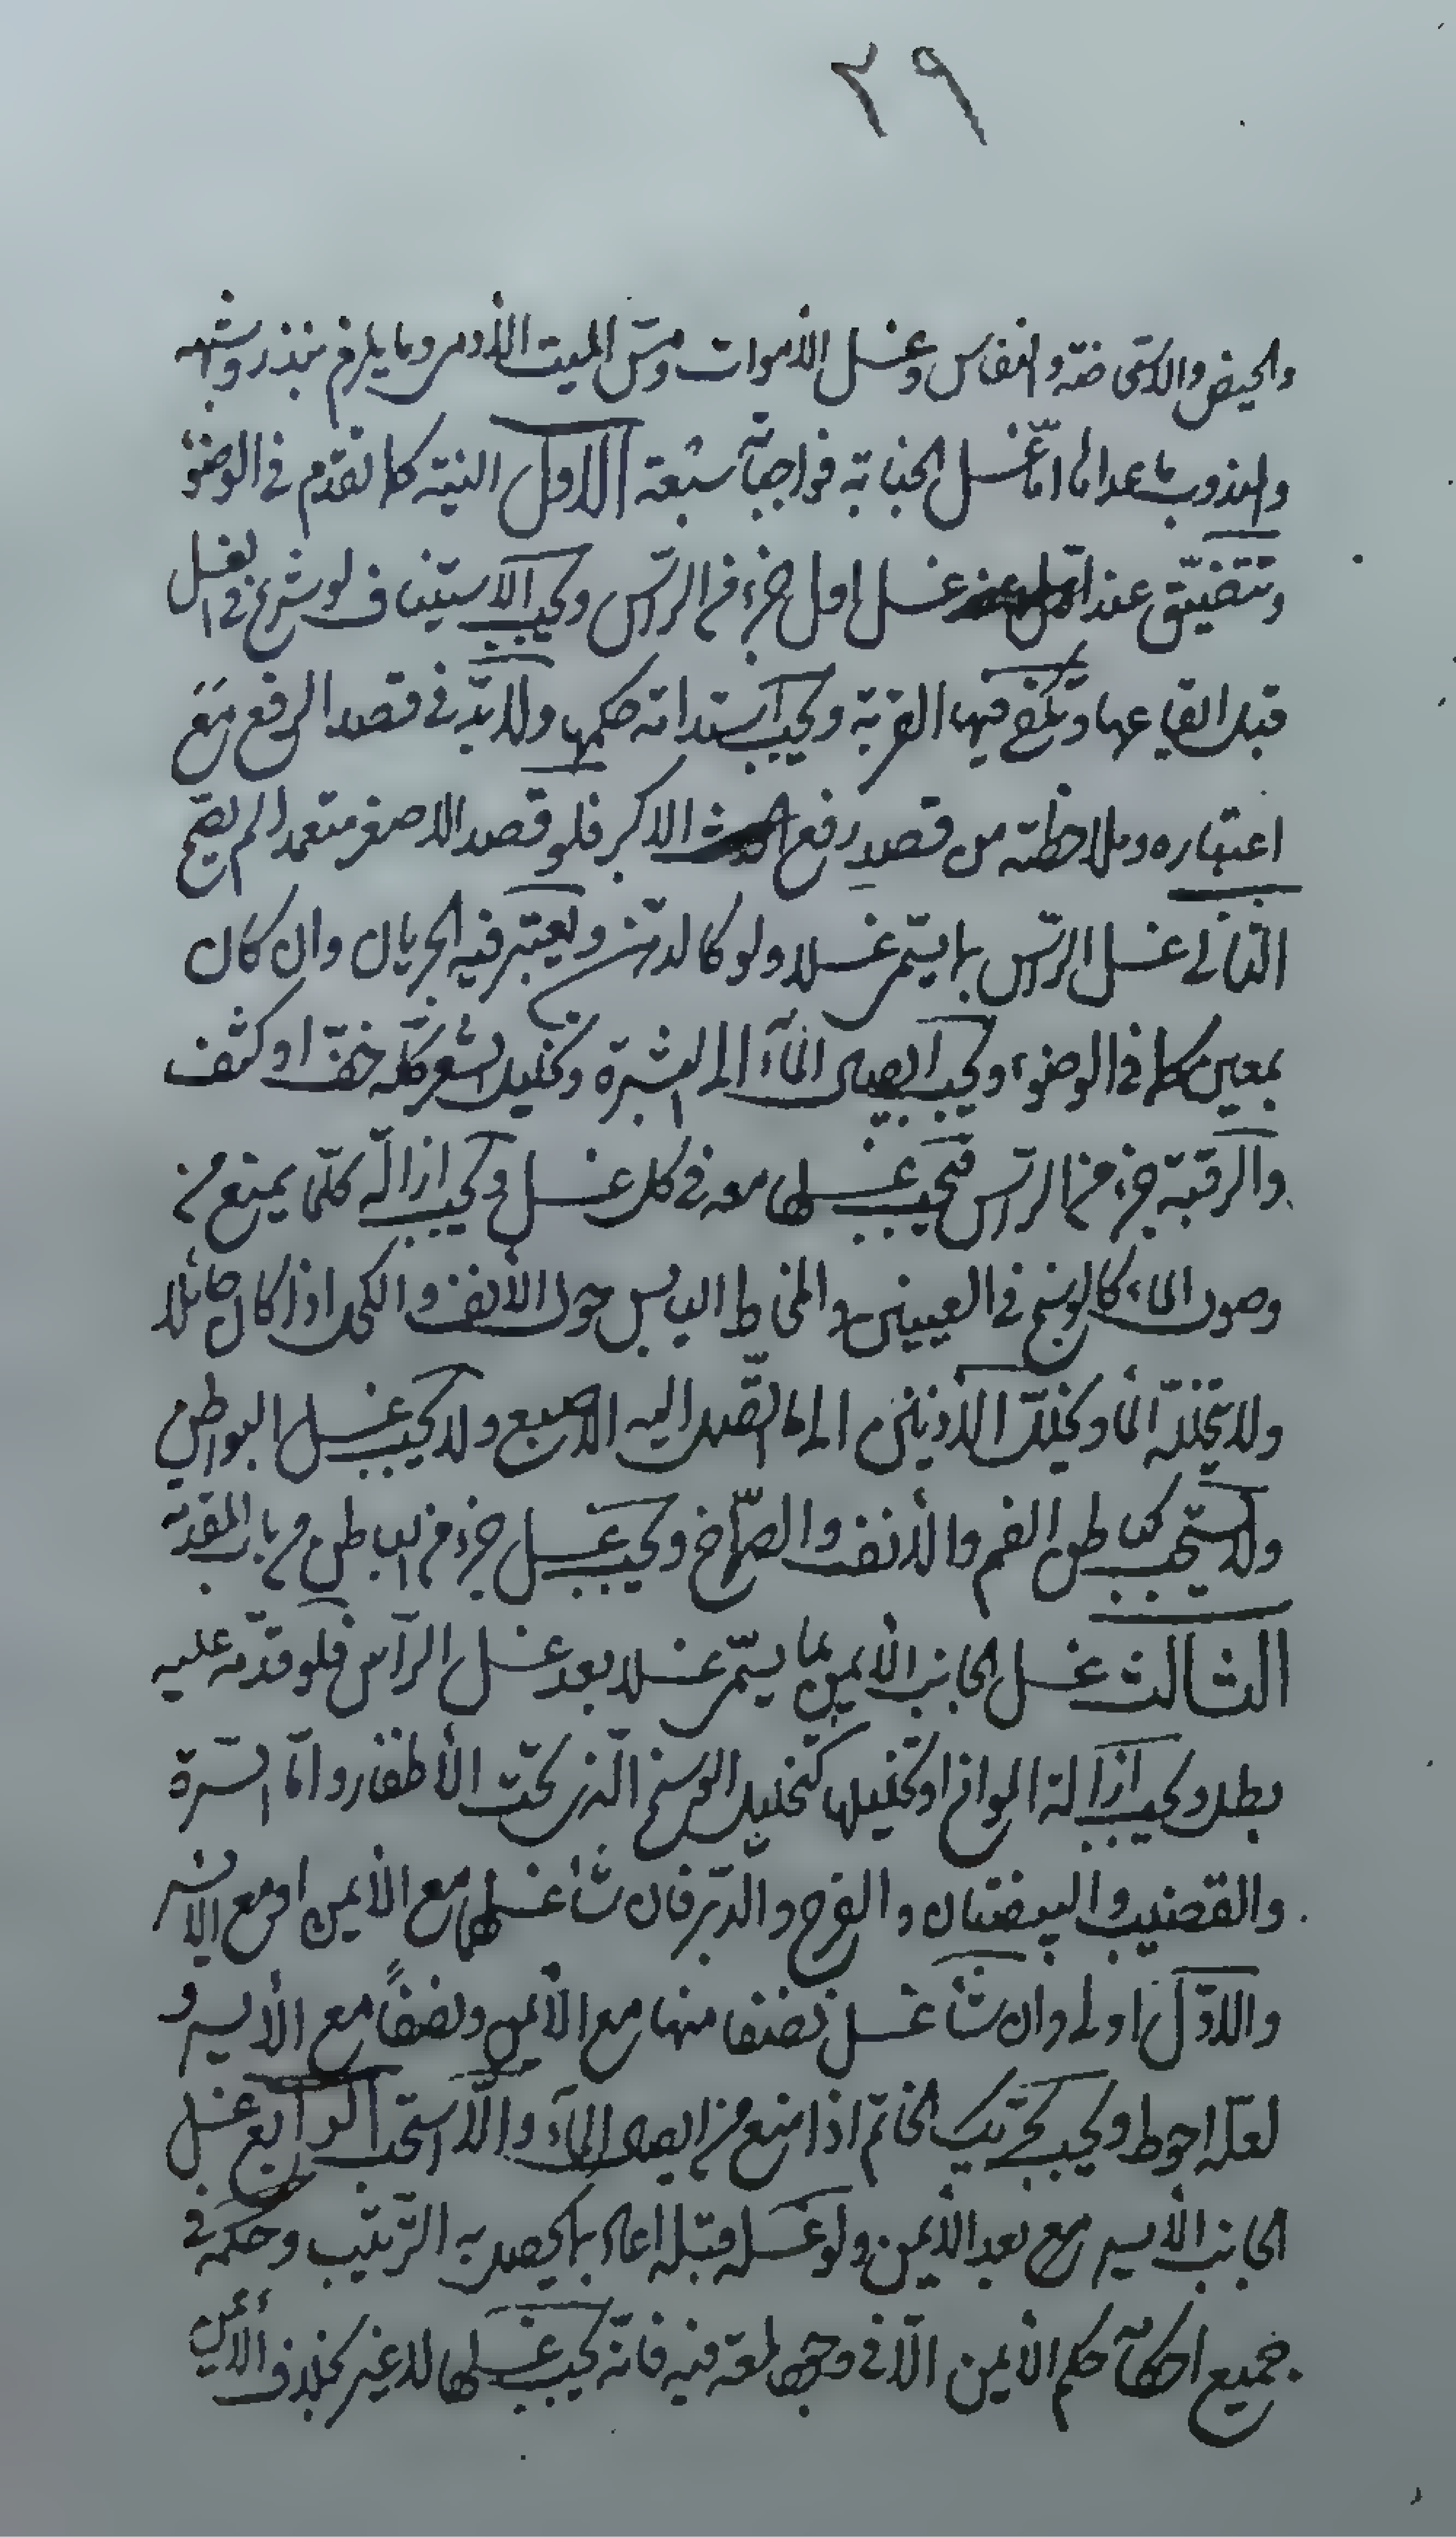 ٢٩
والحيض والاستحاضة والنفاس وغسل الأموات ومسّ الميت الآدمى وما يلزم بنذر وشبهه
والمندوب ما عداها امّا غسل الجنابة فواجباته سبعة الاول النية كما تقدم فى الوضوء
وتتضيّق عند غسل اول جزء من الرأس ويجب الاستيناف لو شرع فى الغسل
قبل ايقاعها ويكفى فيها القربة ويجب استدامة حكمها ولا بدّ فى قصد الرفع مع
اعتباره وملاحظته من قصد رفع الحدث الاكبر فلو قصد الاصغر متعمدا لم يصح
الثانى غسل الرأس بما يسمّى غسلا ولو كالدهن ويعتبر فيه الجريان وان كان
بمعين كما فى الوضوء ويجب ايصال الماء الى البشرة وتخليل الشعر كله خفّ او كثف
والرقبة جزء من الرأس فيجب غسلها معه فى كل غسل ويجب ازالة كلّما يمنع من
وصول الماء كالوسخ فى العينين والمخاط اليابس حول الأنف والكحل اذا كان حائلا
ولا يتخلله الماء وتخليل الأذنين الى ما تصل اليه الاصبع ولا يجب غسل البواطن
ولا يستحب كباطن الفم والأنف والصماخ ويجب غسل جزء من الباطن من باب المقدمة
الثالث غسل الجانب الأيمن بما يسمّى غسلا بعد غسل الرأس فلو قدّمه عليه
بطل ويجب ازالة الموانع او تخليلها كتخليل الوسخ الّذى تحت الأظفار وامّا السّرة
والقضيب والبيضتان والفرج والدّبر فان شاء غسلها مع الأيمن او مع الايسر
والاوّل اولى وان شاء غسل نصفا منها مع الأيمن ونصفاً مع الأيسر و
لعلّه احوط ويجب تحريك الخاتم اذا منع من ايصال الماء والّا استحب الرابع غسل
الجانب الأيسر مع بعد الأيمن ولو غسله قبله اعاد بما يحصل به الترتيب وحكمه فى
جميع احكام حكم الأيمن الّا فى وجود لمعة فيه فانّه يجب غسلها لا غير بخلاف الأيمن